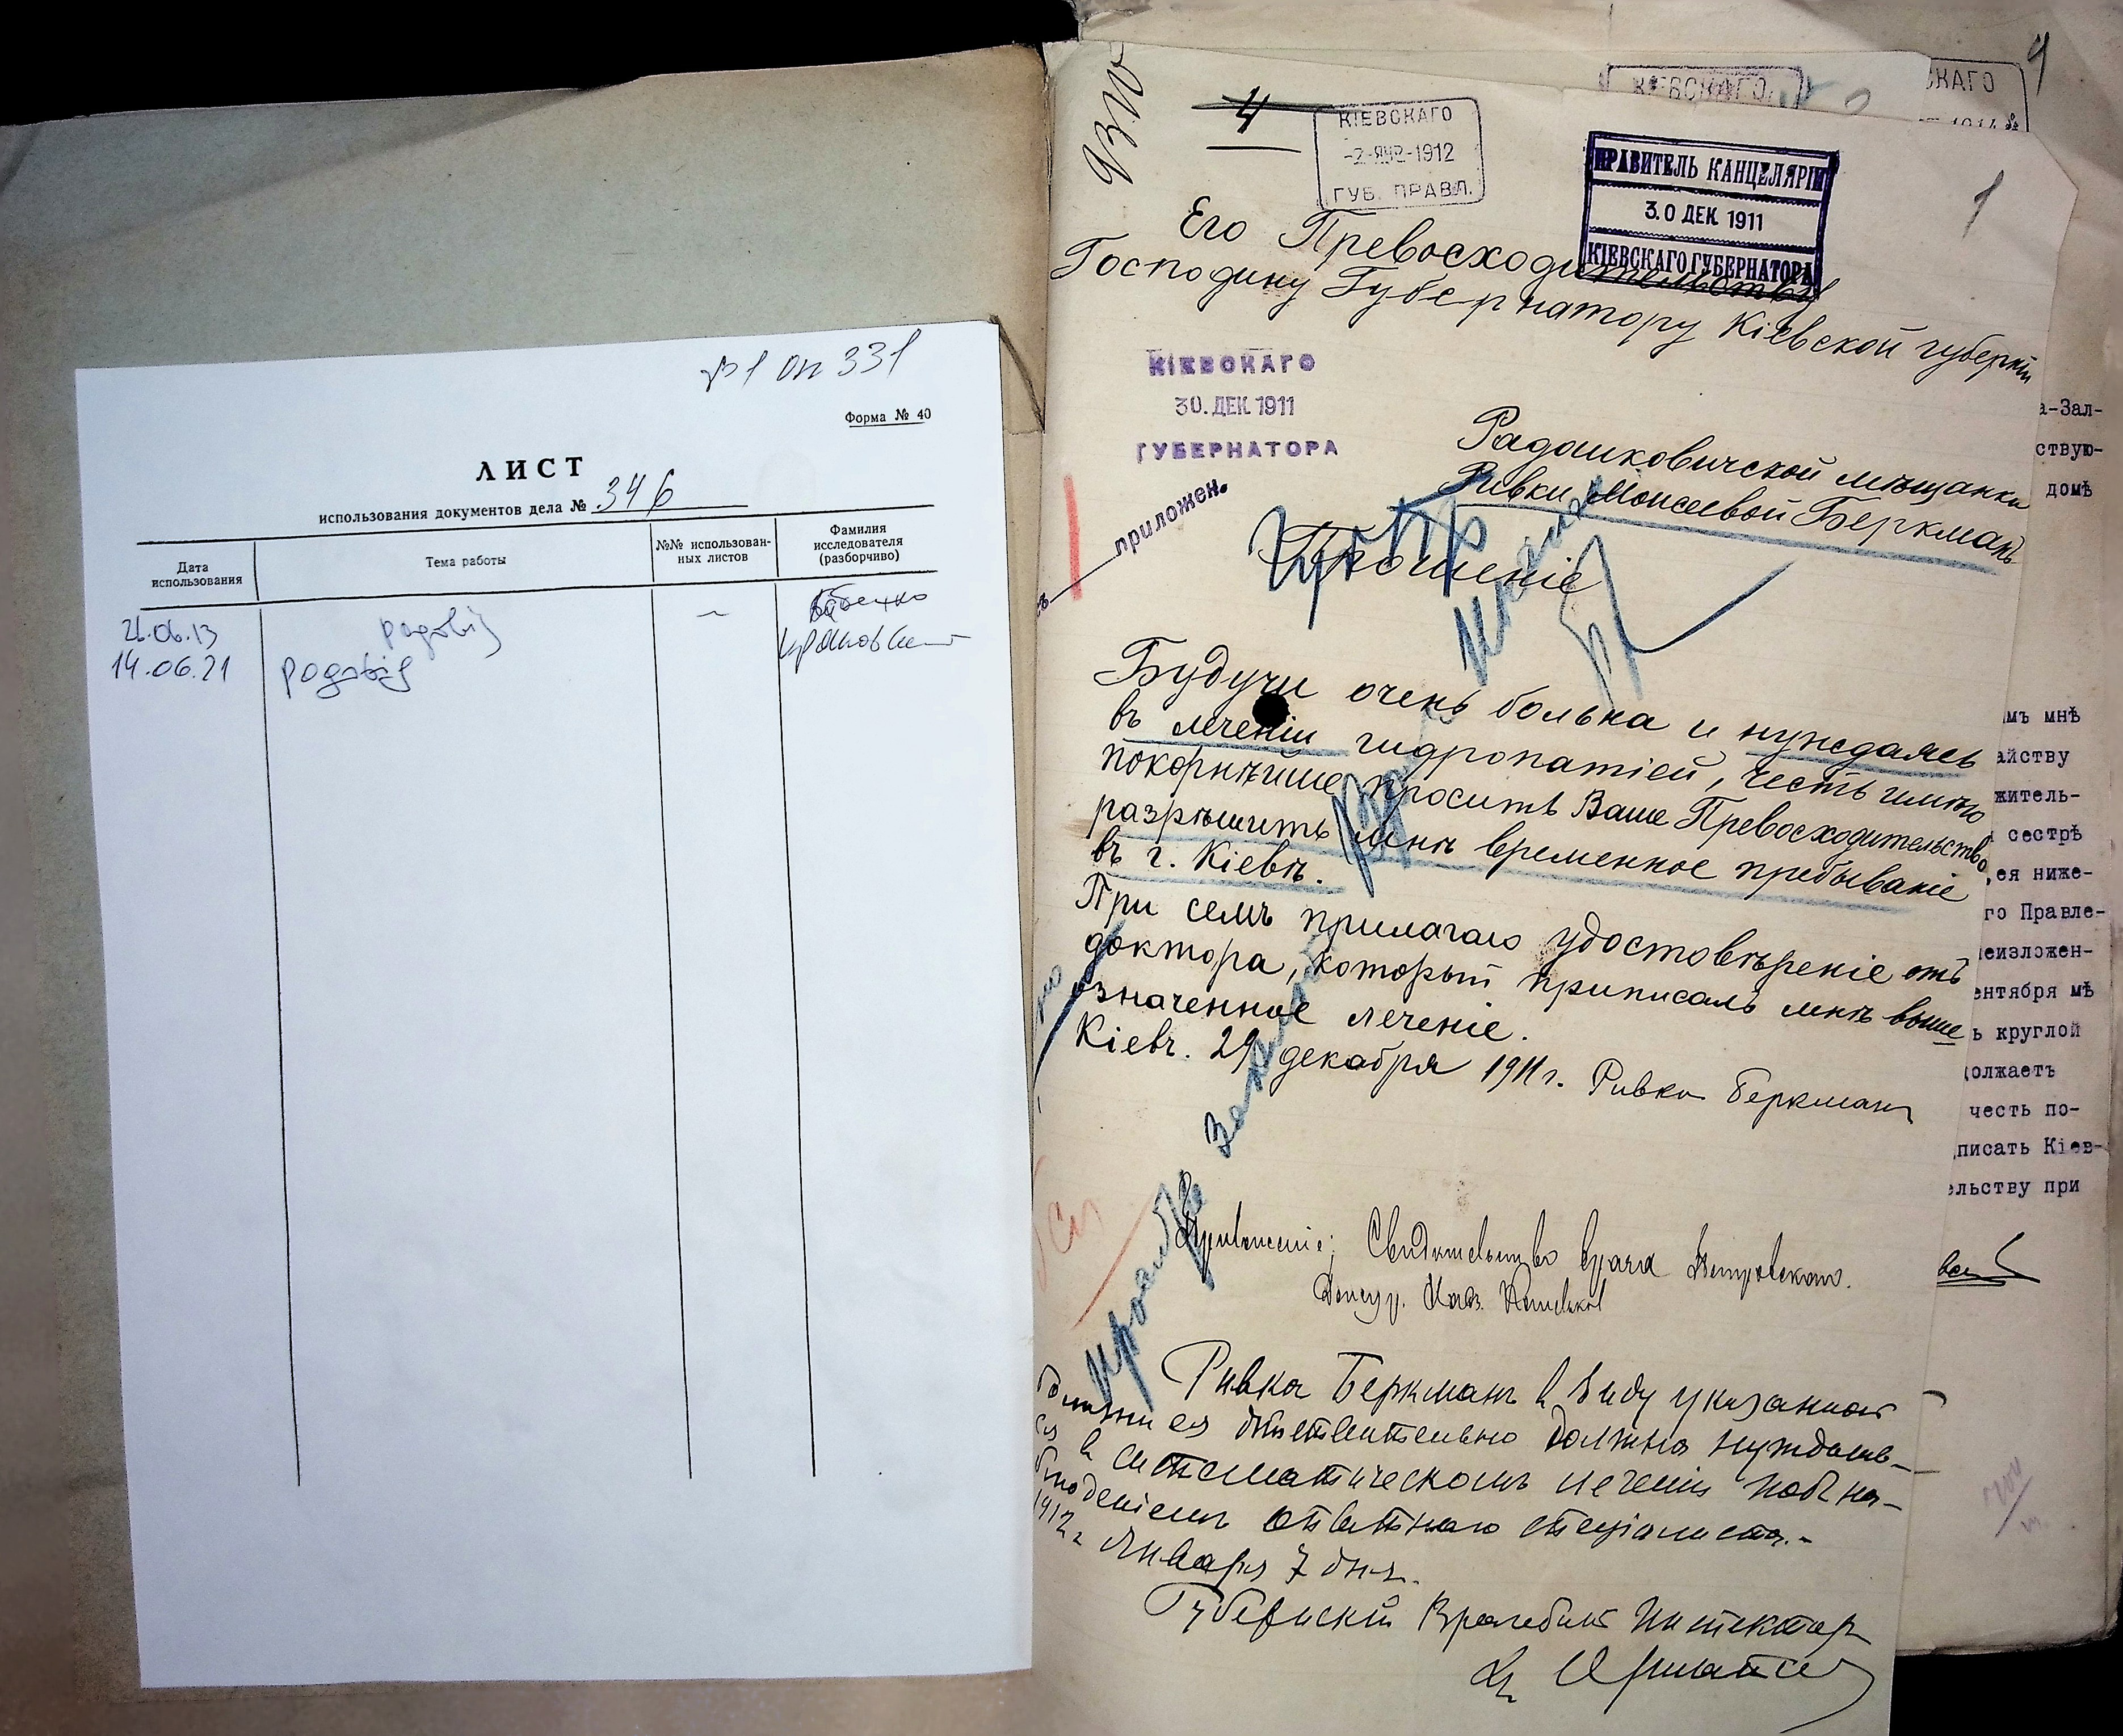 р1 оп 331
Форма № 40
ЛИСТ
использования документов дела № 346
Дата использования
Тема работы
№№ использован-
ных листов
Фамилия
исследователя
(разборчиво)
26.06.13 родовід –
14.06.21 родовід
4
КІЕВСКАГО
-2-ЯНВ-1912
ГУБ. ПРАВЛ.
ПРАВИТЕЛЬ КАНЦЕЛЯРІИ
30 ДЕК 1911
КІЕВСКАГО ГУБЕРНАТОРА
1
Его Превосходительству
Господину Губернатору Кіевской губерніи
КІЕВСКАГО
30. ДЕК. 1911
ГУБЕРНАТОРА
приложен.
Радошковичской мѣщанки
Ривки Моисеевой Беркманъ
Прошеніе
Будучи очень больна и нуждаясь
въ леченіи гидропатіей, честь имѣю
покорнѣйше просить Ваше Превосходительство
разрѣшить мнѣ временное пребываніе
въ г. Кіевѣ.
При семъ прилагаю удостовѣреніе отъ
доктора, который приписалъ мнѣ выше
означенное леченіе.
Кіевъ. 29 декабря 1911 г. Ривка Беркманъ
Приложеніе: Свидѣтельство врача
Ривка Беркманъ въ виду указанной
болѣзни ея дѣйствительно должна нуждать-
ся въ систематическомъ леченіи подъ на-
блюденіемъ опытнаго спеціалиста.-
1912 г. Января 7 дня.
Губернскій Врачебный Инспекторъ
КІЕВСКАГО
СКАГО
а-Зал-
ствую-
домѣ
мъ мнѣ
айству
житель-
сестрѣ
,ея ниже-
го Правле-
еизложен-
ентября мѣ
ь круглой
олжаетъ
честь по-
писать Кіев-
льству при